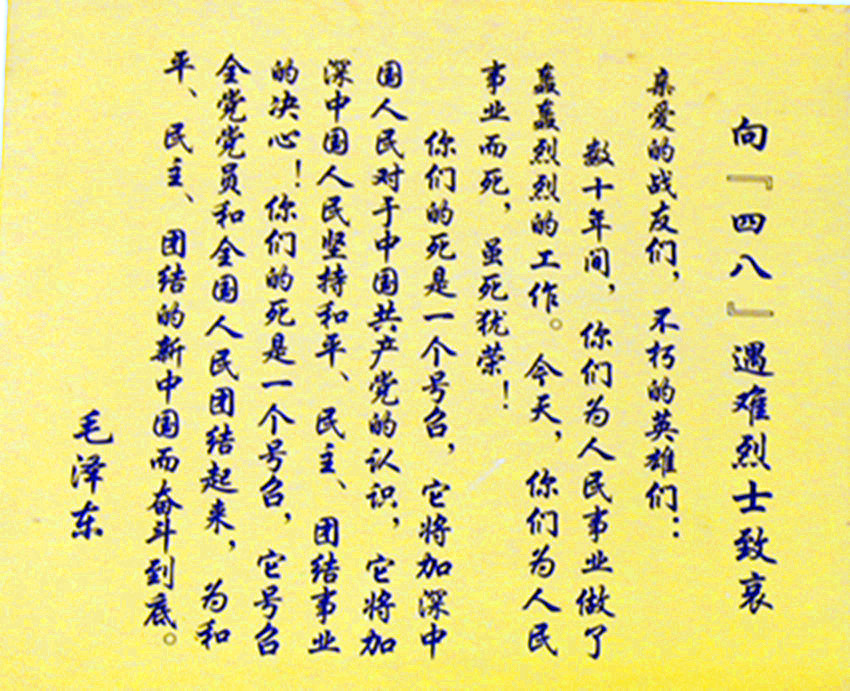 向『四八』遇难烈士致哀
亲爱的战友们，不朽的英雄们：
数十年间，你们为人民事业做了
轰轰烈烈的工作。今天，你们为人民
事业而死，虽死犹荣！
你们的死是一个号召，它将加深中
国人民对于中国共产党的认识，它将加
深中国人民坚持和平、民主、团结事业
的决心！你们的死是一个号召，它号召
全党党员和全国人民团结起来，为和
平、民主、团结的新中国而奋斗到底。
毛泽东